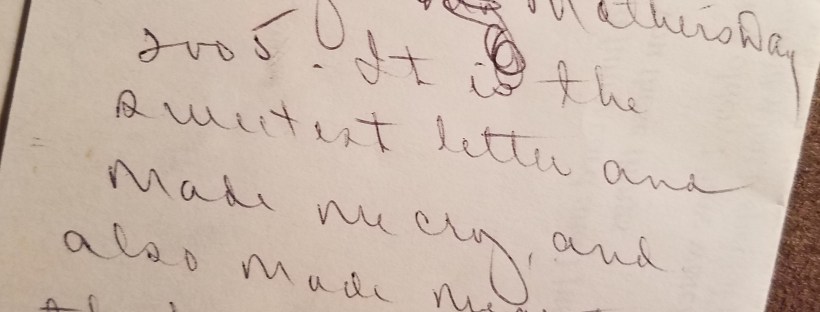 Mothers Day
2005. It is the
sweetest letter and
made me cry, and
also made me